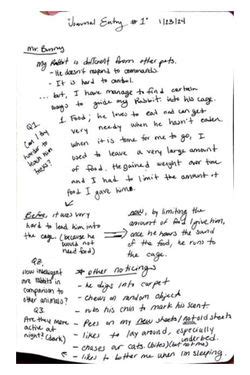 Journal Entry #1
1/23/24
Mr. Bunny
My Rabbit is different from other pets.
- He doesn't respond to commands.
- It is hard to control.
... but, I have manage to find certain
ways to guide my Rabbit into his cage.
1. Food; he loves to eat and can get
very needy when he hasn't eaten.
When it is time for me to go, I
used to leave a very large amount
of food. He gained weight over time
and I had to limit the amount of
food I gave him.
Q1.
Can I try
harder to
teach him
tricks?
Before it was very
hard to lead him into
the cage. (because he
would not
need food)
now, by limiting the
amount of food I give him,
once he hears the sound
of the food, he runs to
the cage.
Q2.
How intelligent
are rabbits in
comparison to
other animals?
Q3.
Are they more
active at
night? (dark)
* other noticings
- he digs into carpet
- chews on random object
- rubs his chin to mark his scent
- Pees on my new sheets/not old sheets
- likes to lay around, especially
underbed.
- chases our cats (bites) (but not me)
- likes to bother me when I'm sleeping.